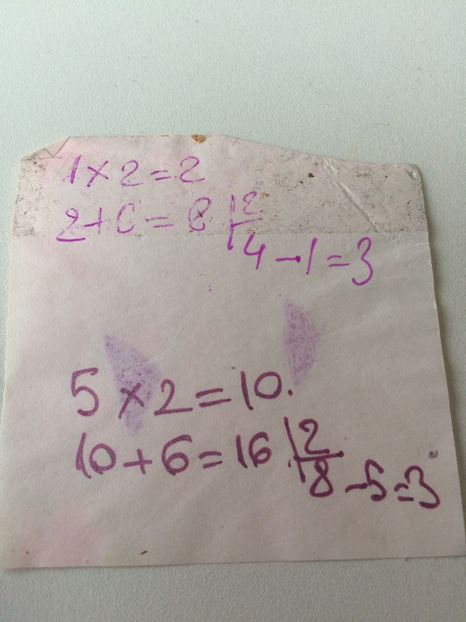 1×2=2
2+6=8 |2
4-1=3
5×2=10.
10+6=16 |2
8-5=3